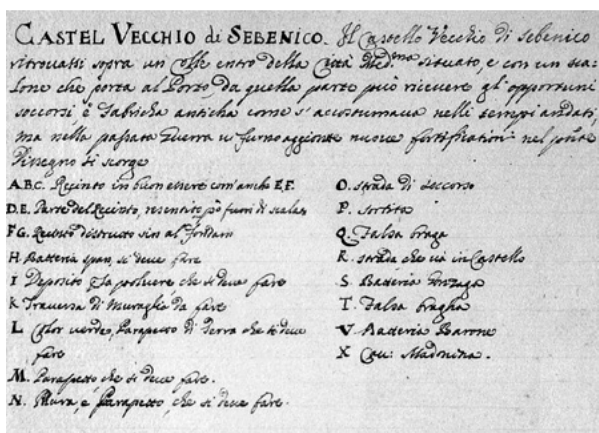 CASTEL VECCHIO di SEBENICO. Il Castello Vecchio di Sebenico
ritrovassi sopra un Colle entro della Città Med.ma situato, e con un sca-
lone che porta al Porto, da quella parte può ricevere gl'opportuni
soccorsi, è fabricha anticha come s'accostumava nelli tempi andati,
ma nella passata Guerra vi furno aggionte nuove fortificationi nel pnte
Dissegno si scorge
A.B.C. Recinto in buon essere com'anche E,F.
D.E. Parte del Recinto, resentito
F G. Recinto distrutto sin al fondam
H. Batteria si deve fare
I Deposito da polvere che si deve fare
K Traversa di Muraglia da fare
L Color verde, Parapetto di Terra che si deve
fare
M. Parapetto che si deve fare.
N. Mura, e Parapetto che si deve fare.
O. strada di soccorso
P. sortita
Q. Falsa braga
R. strada che và in Castello
S. Batteria
T. Falsa bragha
V. Batteria Barone
X Madonina.